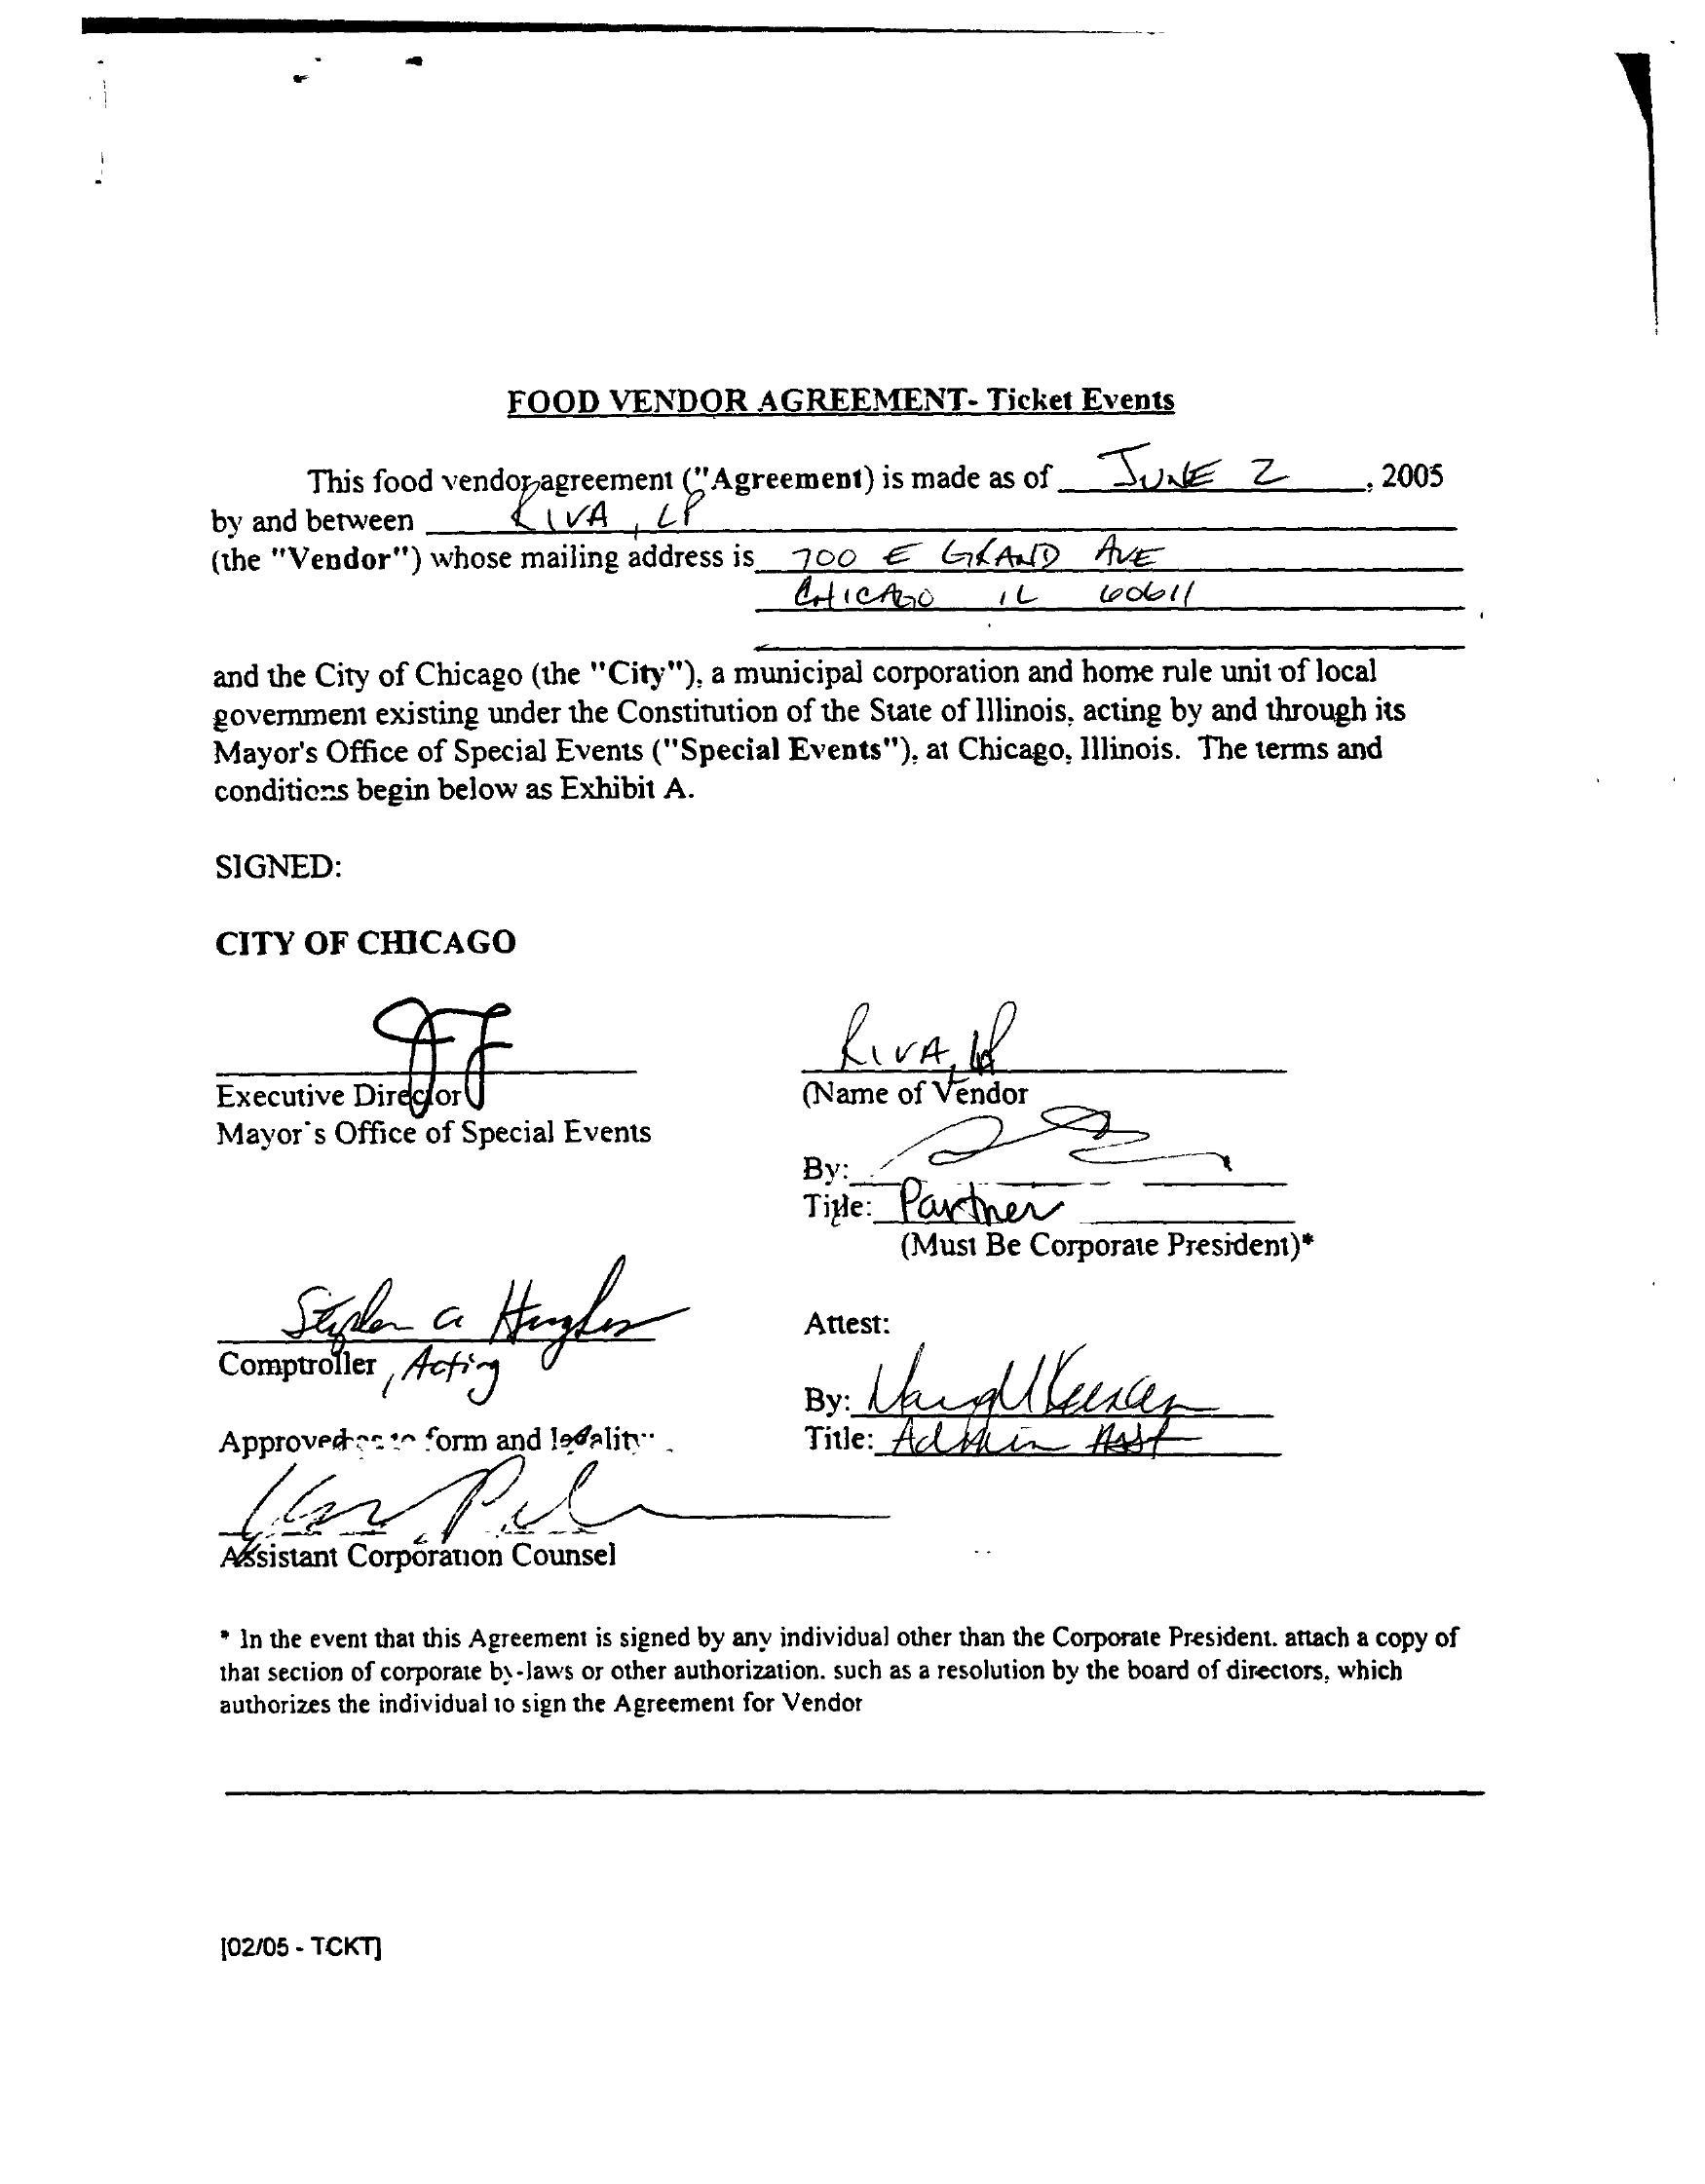 FOOD VENDOR AGREEMENT- Ticket Events
This food vendor agreement ("Agreement) is made as of JUNE 2, 2005
by and between RIVA, LP
(the "Vendor") whose mailing address is 700 E GRAND AVE
CHICAGO IL 60611
and the City of Chicago (the "City"), a municipal corporation and home rule unit of local
government existing under the Constitution of the State of Illinois, acting by and through its
Mayor's Office of Special Events ("Special Events"), at Chicago, Illinois. The terms and
conditions begin below as Exhibit A.
SIGNED:
CITY OF CHICAGO
RIVA, LP
Executive Director
(Name of Vendor
Mayor's Office of Special Events
By:
Title: Partner
(Must Be Corporate President)*
Stephen A Hughes
Attest:
Comptroller, Acting
By:
Approved as to form and legality
Title: Admin Asst
Assistant Corporation Counsel
* In the event that this Agreement is signed by any individual other than the Corporate President, attach a copy of
that section of corporate by-laws or other authorization, such as a resolution by the board of directors, which
authorizes the individual to sign the Agreement for Vendor
[02/05 - TCKT]